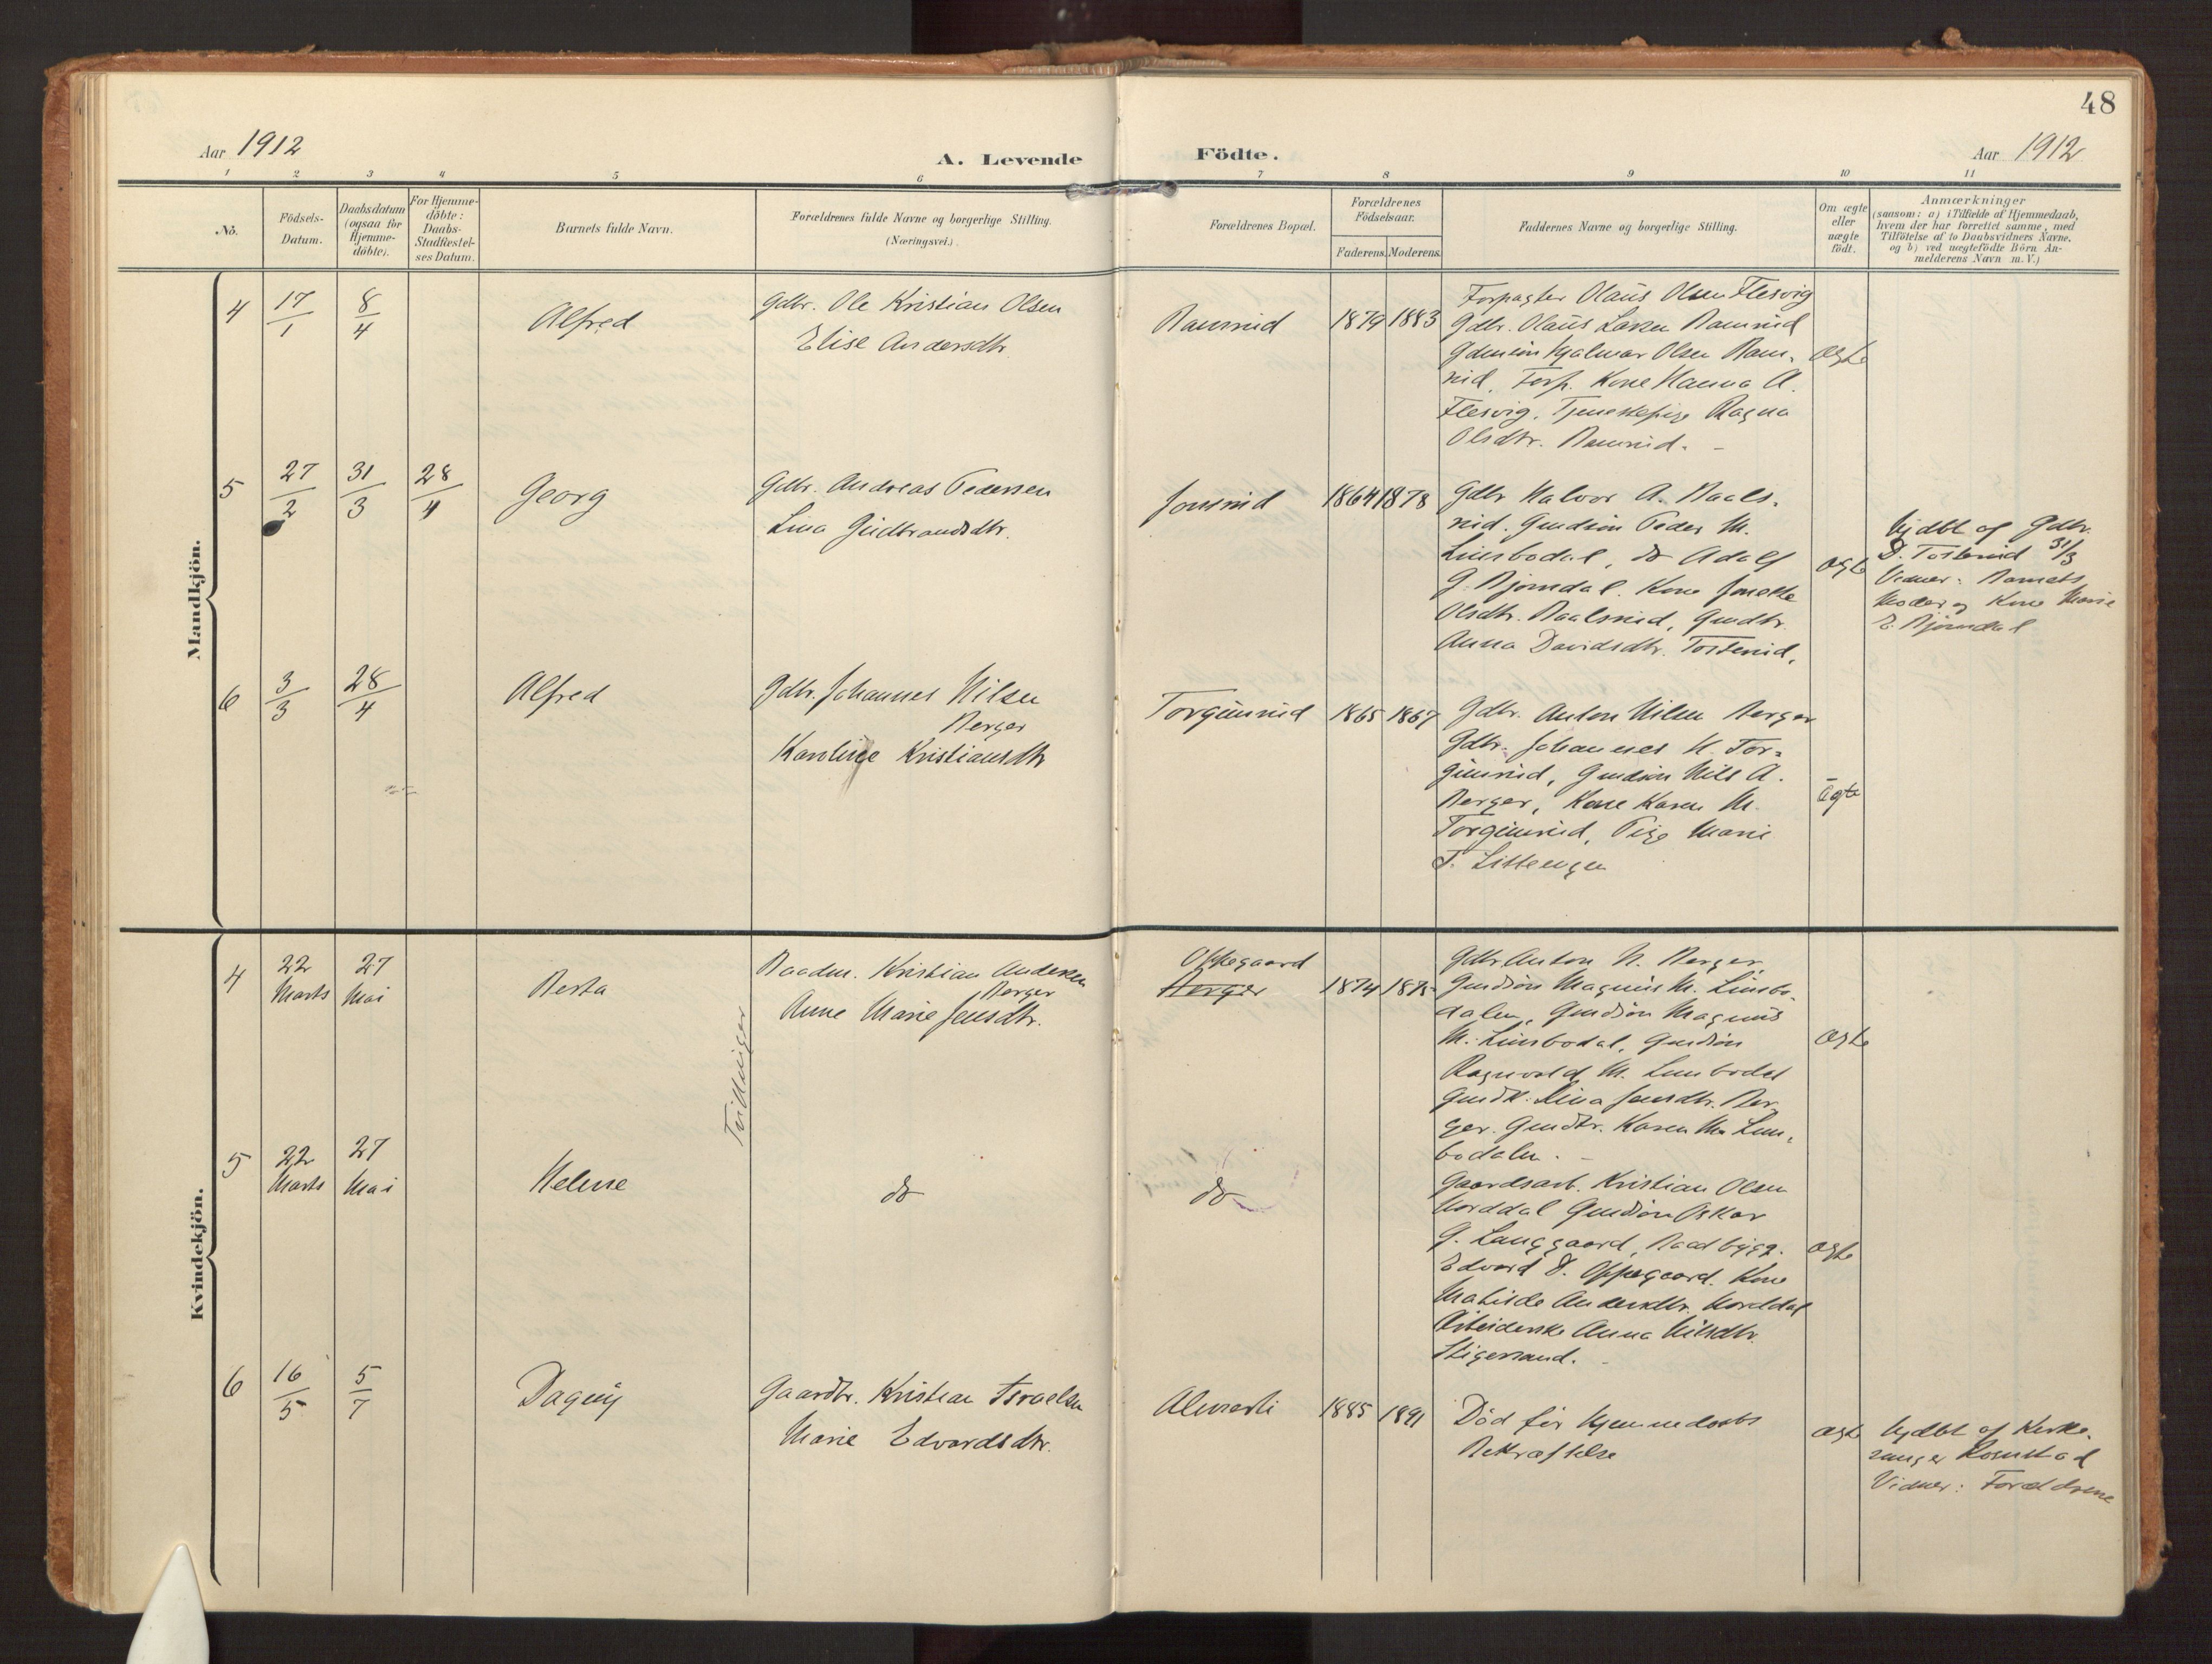 48
Aar 1912
A. Levende Födte.
Aar 1912
1 2 3 4 5 6 7 8 9 10 11
No.
Födsels-
Datum.
Daabsdatum
(ogsaa for
Hjemme-
döbte).
For Hjemme-
döbte:
Daabs-
Stadfæstel-
ses Datum.
Barnets fulde Navn.
Forældrenes fulde Navne og borgerlige Stilling.
(Næringsvei).
Forældrenes Bopæl.
Forældrenes
Födselsaar.
Faderens. Moderens.
Faddernes Navne og borgerlige Stilling.
Om ægte
eller
uægte
födt.
Anmærkninger
(saasom: a) i Tilfælde af Hjemmedaab,
hvem der har forrettet samme, med
Tilföielse af to Daabsvidners Navne,
og b) ved uægtefödte Börn An-
melderens Navn m. V.)
Mandkjön.
4
17/1
8/4
Alfred
Gdbr. Ole Kristian Olsen
Elise Andersdtr.
Ramsrud
1879 1883
Forpagter Olaüs Olsen Flesvig
Gdbr. Olaüs Larsen Ramsrud
Gdmsön Hjalmar Olsen Ram-
rud, Forp. Kone Hanna A.
Flesvig, Tjenestepige Ragna
Olsdtr. Ramsrud. -
ægte
5
27/2
31/3
28/4
Georg
Gdbr. Andreas Pedersen
Lina Gudbrandsdtr.
1864 1878
Gdbr Halvor A. Raals-
rud. Gmdsön Peder M.
Linsbodal, do Adolf
G. Bjørndal. Kone
Olsdtr. Raalsrud, Gmdtr.
Anna Davidsdtr. Tosterud,
ægte
Hjdbt af Gdbr.
D. Tosterud 31/3
Vidner: Barnets
Moder og Kone Marie
E. Bjørndal
6
3/3
28/4
Alfred
Gdbr. Johannes Nilsen
Berger
Karoline Kristiansdtr
Torgunrud
1865 1867
Gdbr. Anton Nilsen Berger
Gdbr. Johannes N. Tor-
gunrud, Gmdsön Nils A.
Berger, Kone Karen M.
Torgunrud, Pige Marie
T. Sittengen
ægte
Kvindekjön.
4
22
Marts
27
Mai
Berta
Tvillinger
Baadm. Kristian Andersen
Berger
Anne Marie Jensdtr.
Oppegaard
Berger
1874 1875
Gdbr. Anton N. Berger
Gmdsön Magnus M. Linsbo-
dalen, Gmdsön Magnus
M. Linsbodal, Gmdsön
Ragnvald M. Linsbodal
Gmdtr. Lina Jensdtr. Ber-
ger. Gmdtr. Karen M. Lins-
bodalen. -
ægte
5
22
Marts
27
Mai
Helene
do
do
Gaardsarb. Kristian Olsen
Norddal Gmdsön Oskar
G. Langgaard, Baadbygg.
Edvard D. Oppegaard. Kone
Matilde Andersdtr. Norddal
Arbeiderske Anna Nilsdtr.
Stigersand. -
ægte
6
16/5
5/7
Dagny
Gaardbr. Kristian Israelsen
Marie Edvardsdtr.
1885 1891
Död før Hjemmedaabs
Bekræftelse
ægte
Hjdbt af Kirke-
sanger Romstad
Vidner: Forældrene